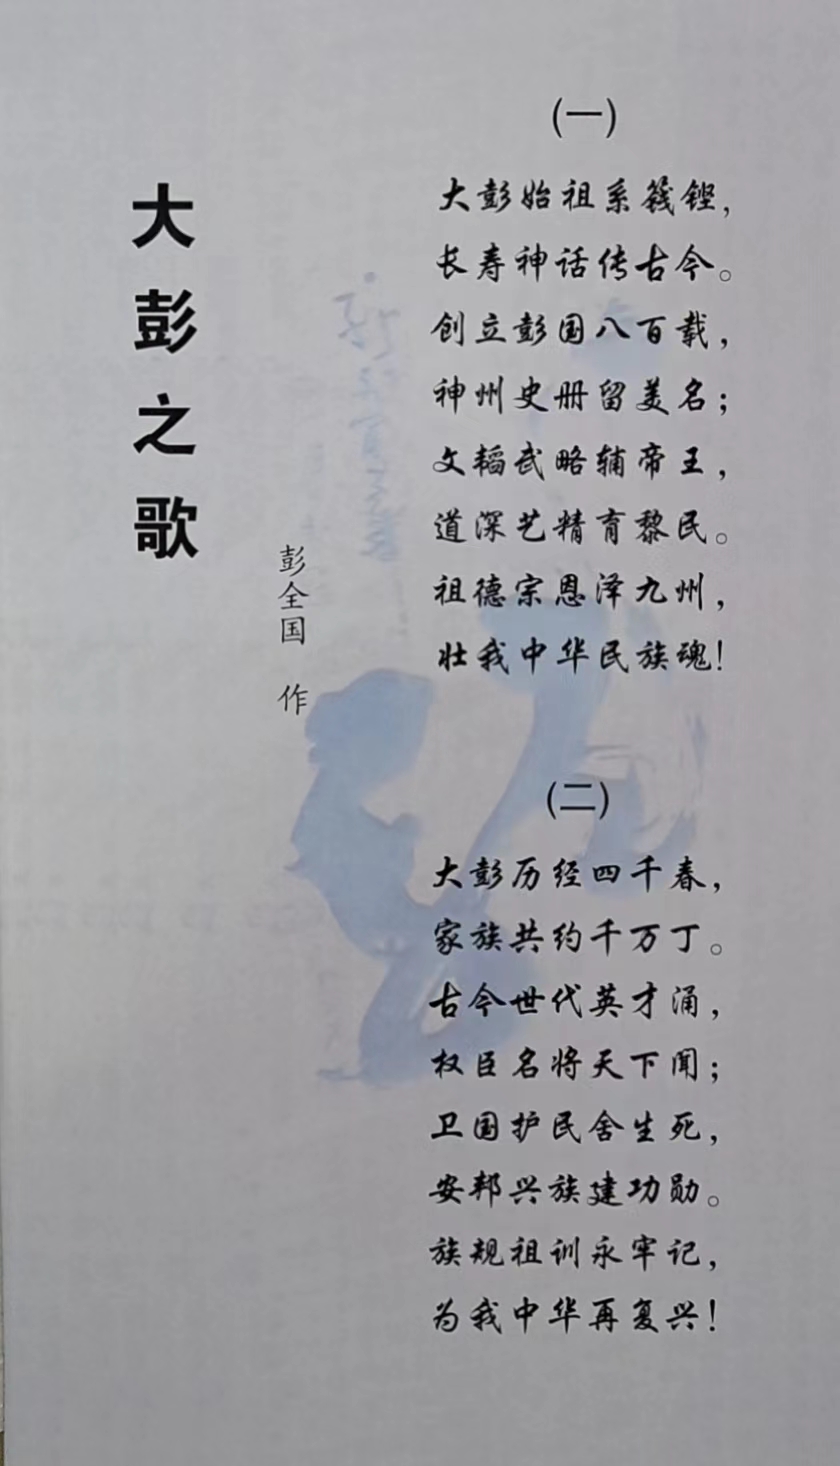 大彭之歌
彭全国 作
(一)
大彭始祖系篯铿,
长寿神话传古今。
创立彭国八百载,
神州史册留美名;
文韬武略辅帝王,
道深艺精育黎民。
祖德宗恩泽九州,
壮我中华民族魂!
(二)
大彭历经四千春,
家族共约千万丁。
古今世代英才涌,
权臣名将天下闻;
卫国护民舍生死,
安邦兴族建功勋。
族规祖训永牢记,
为我中华再复兴!